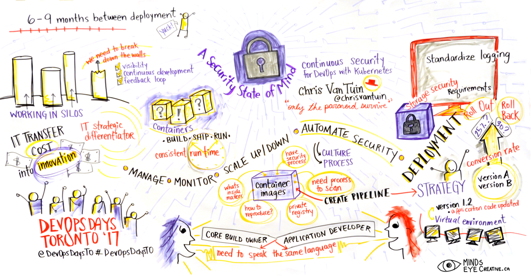 6-9 months between deployment
we need to break
down the walls
visibility
continuous development
feedback loop
WORKING IN SILOS
IT TRANSFER
COST
into
innovation
IT strategic
differentiator
containers
·BUILD·SHIP·RUN·
consistent run time
A Security State of Mind
continuous security
for DevOps with Kubernetes
Chris Van Tuin
@chrisvantuin
"only the paranoid survive"
Standardize logging
security
requirements
MANAGE · MONITOR · SCALE UP/DOWN · AUTOMATE SECURITY · DEPLOYMENT
STRATEGY
CULTURE
PROCESS
have
security
process
need process
to scan
what's
inside
container
images
how to
reproduce?
private
registry
CREATE PIPELINE
Roll Out
Roll
Back
conversion rate
version A
version B
version 1.2
code updated
Virtual environment
DEVOPSDAYS
TORONTO '17
@DevOpsDaysTO #DevOpsDaysTO
CORE BUILD OWNER
APPLICATION DEVELOPER
need to speak the same language
MINDS
EYE CREATIVE.CA